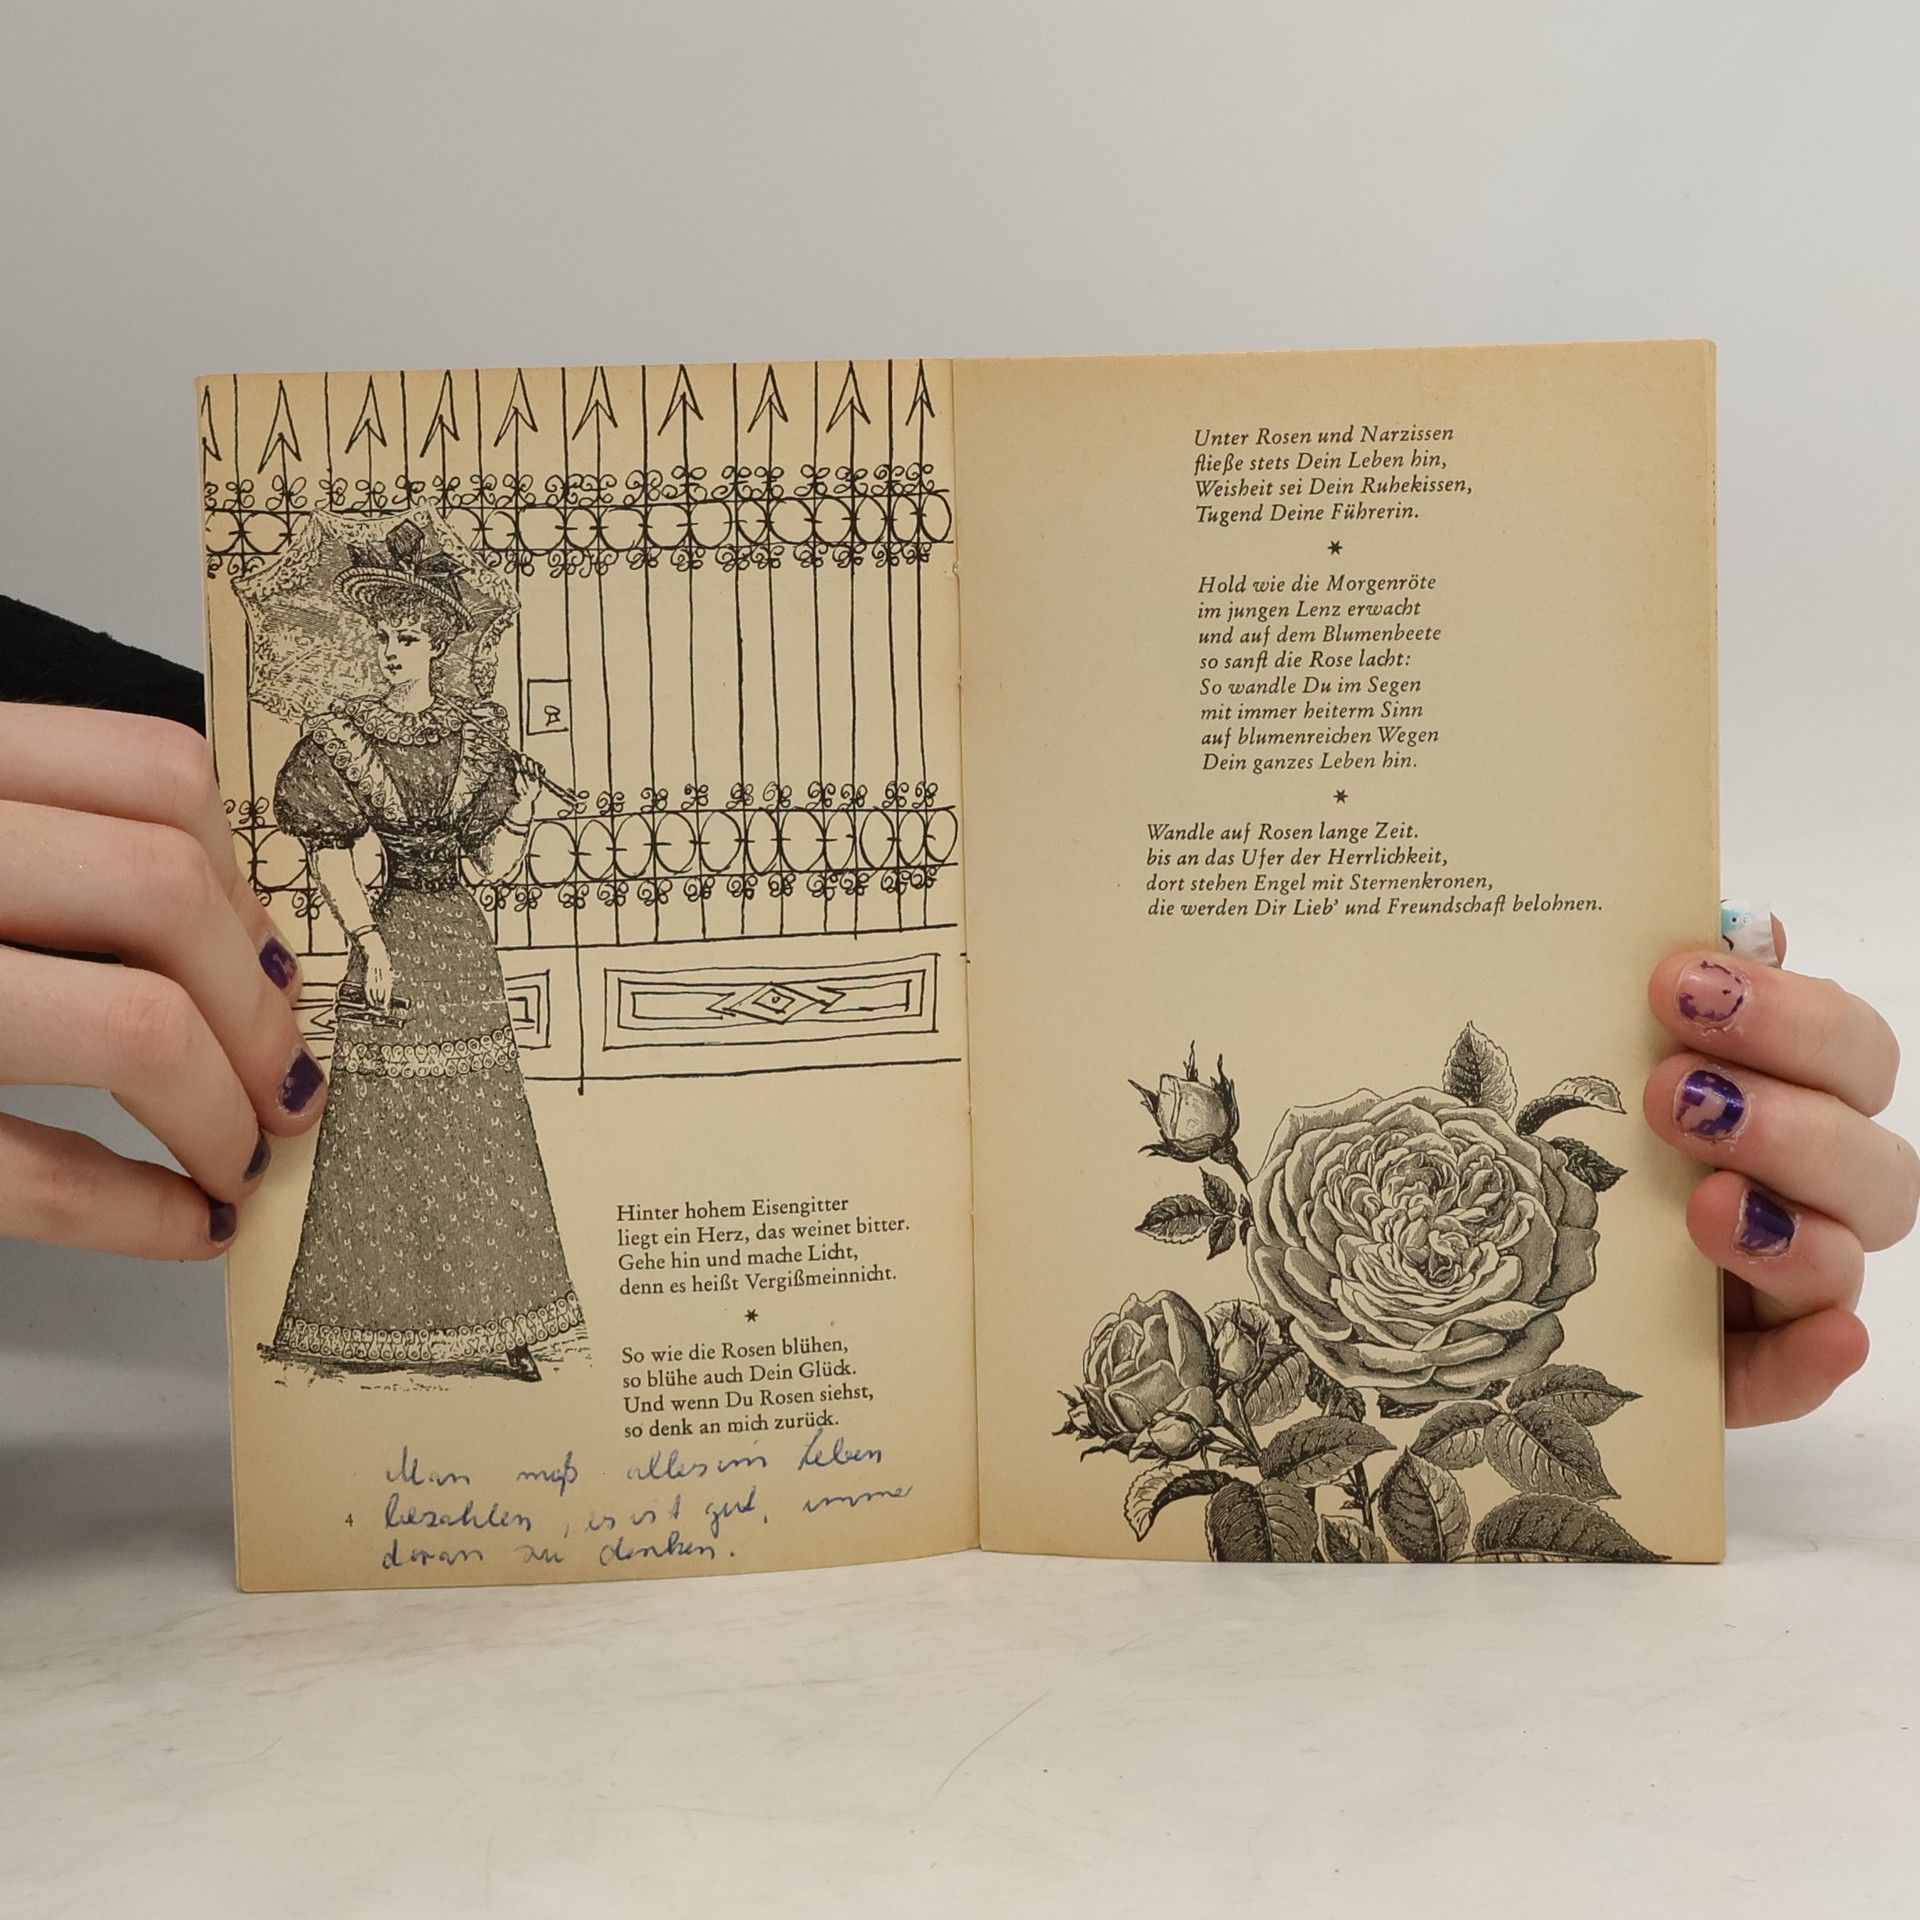 Hinter hohem Eisengitter
liegt ein Herz, das weinet bitter.
Gehe hin und mache Licht,
denn es heißt Vergißmeinnicht.
*
So wie die Rosen blühen,
so blühe auch Dein Glück.
Und wenn Du Rosen siehst,
so denk an mich zurück.
Man muß alles im Leben
bezahlen, es ist gut, immer
daran zu denken.
4
Unter Rosen und Narzissen
fließe stets Dein Leben hin,
Weisheit sei Dein Ruhekissen,
Tugend Deine Führerin.
*
Hold wie die Morgenröte
im jungen Lenz erwacht
und auf dem Blumenbeete
so sanft die Rose lacht:
So wandle Du im Segen
mit immer heiterm Sinn
auf blumenreichen Wegen
Dein ganzes Leben hin.
*
Wandle auf Rosen lange Zeit.
bis an das Ufer der Herrlichkeit,
dort stehen Engel mit Sternenkronen,
die werden Dir Lieb' und Freundschaft belohnen.